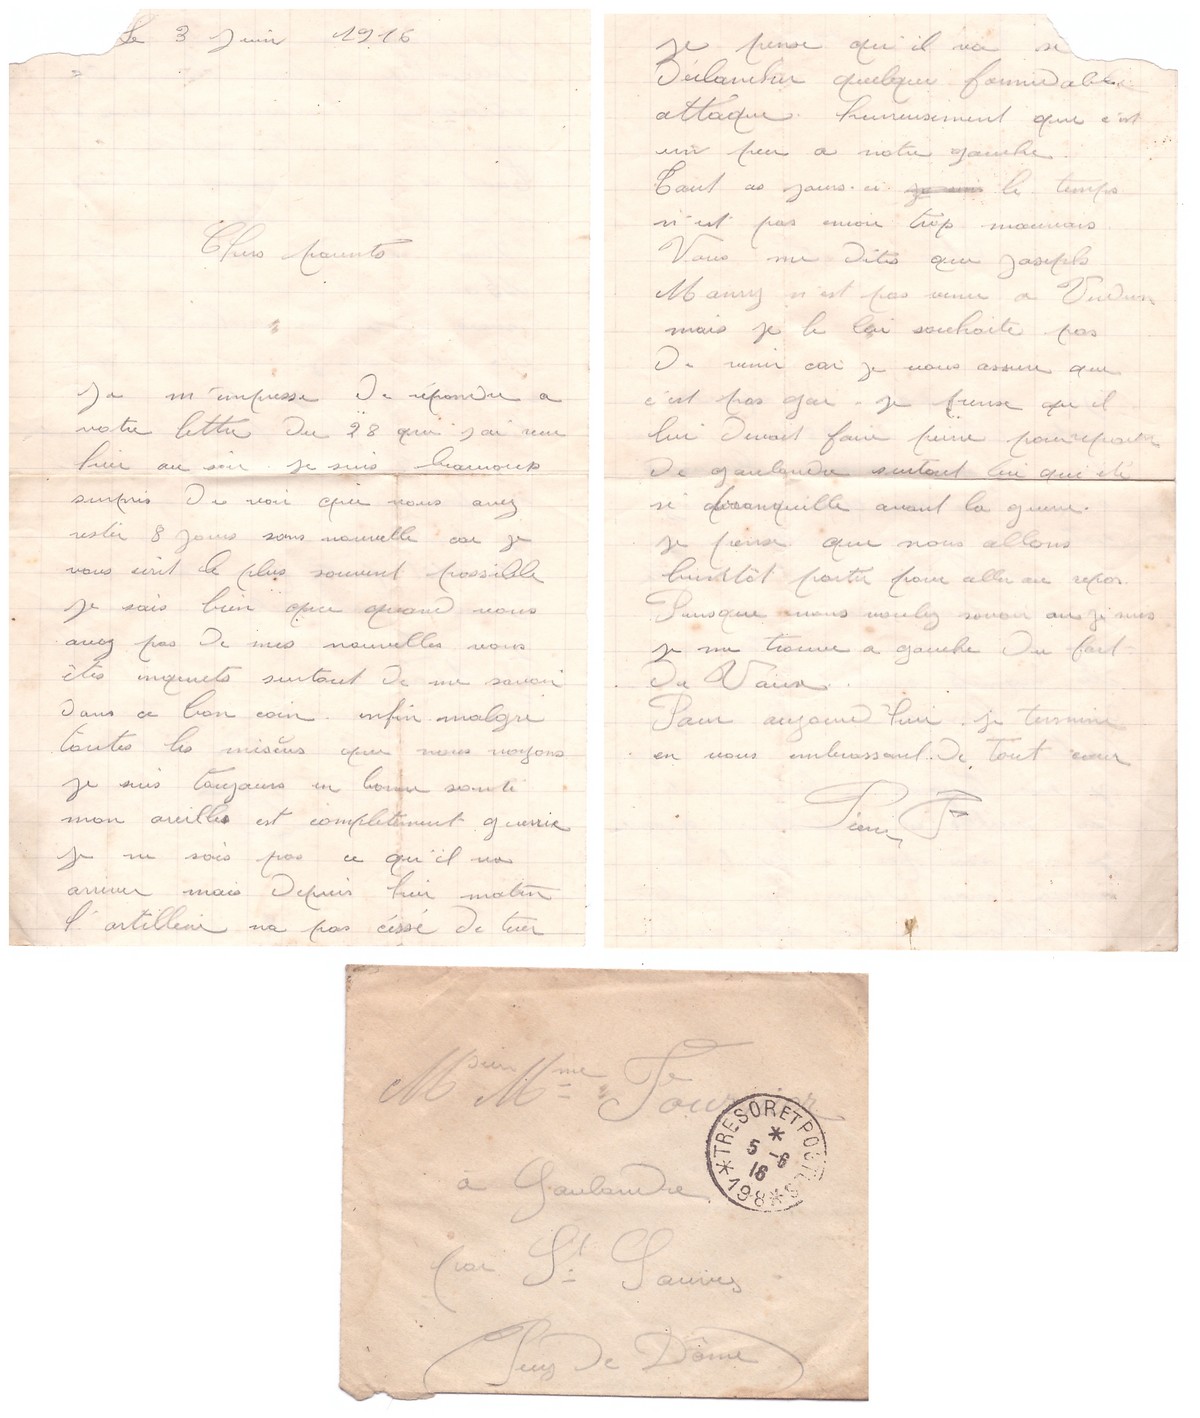 Le 3 Juin 1916
Chers parents
Je m'empresse de répondre a
votre lettre du 28 que j'ai reçu
hier au soir. je suis beaucoup
surpris de voir que vous avez
rester 8 jours sans nouvelle car je
vous écrit le plus souvent possible
je sais bien que quand vous
avez pas de mes nouvelles vous
êtes inquiets surtout de me savoir
dans ce bon coin. enfin malgré
toutes les misères que nous voyons
je suis toujours en bonne santé
mon oreilles est completement guerrie
je ne sais pas ce qu'il va
arriver mais depuis hier matin
l'artillerie na pas céssé de tirer
je pense qu'il va se
déclancher quelque formidable
attaque. heureusement que c'est
un peu a notre gauche.
Tout ces jours-ci le temps
n'est pas encore trop mauvais.
Vous me dites que Joseph
Maury n'est pas venu a Verdun
mais je le lui souhaite pas
de venir car je vous assure que
c'est pas gai. je pense qu'il
lui devait faire peine pour repartir
de gaulandre surtout lui qui été
si tranquille avant la guerre.
je pense que nous allons
bientôt partir pour aller au repos.
Puisque vous voulez savoir ou je suis
je me trouve a gauche du fort
de Vaux.
Pour aujourd'hui je termine
en vous embrassant de tout cœur
Pierre F
Msieur Mme Fournier
à Gaulandre
par St Sauves
Puy de Dôme
*TRESOR ET POSTES*
*
5 -6
16
198